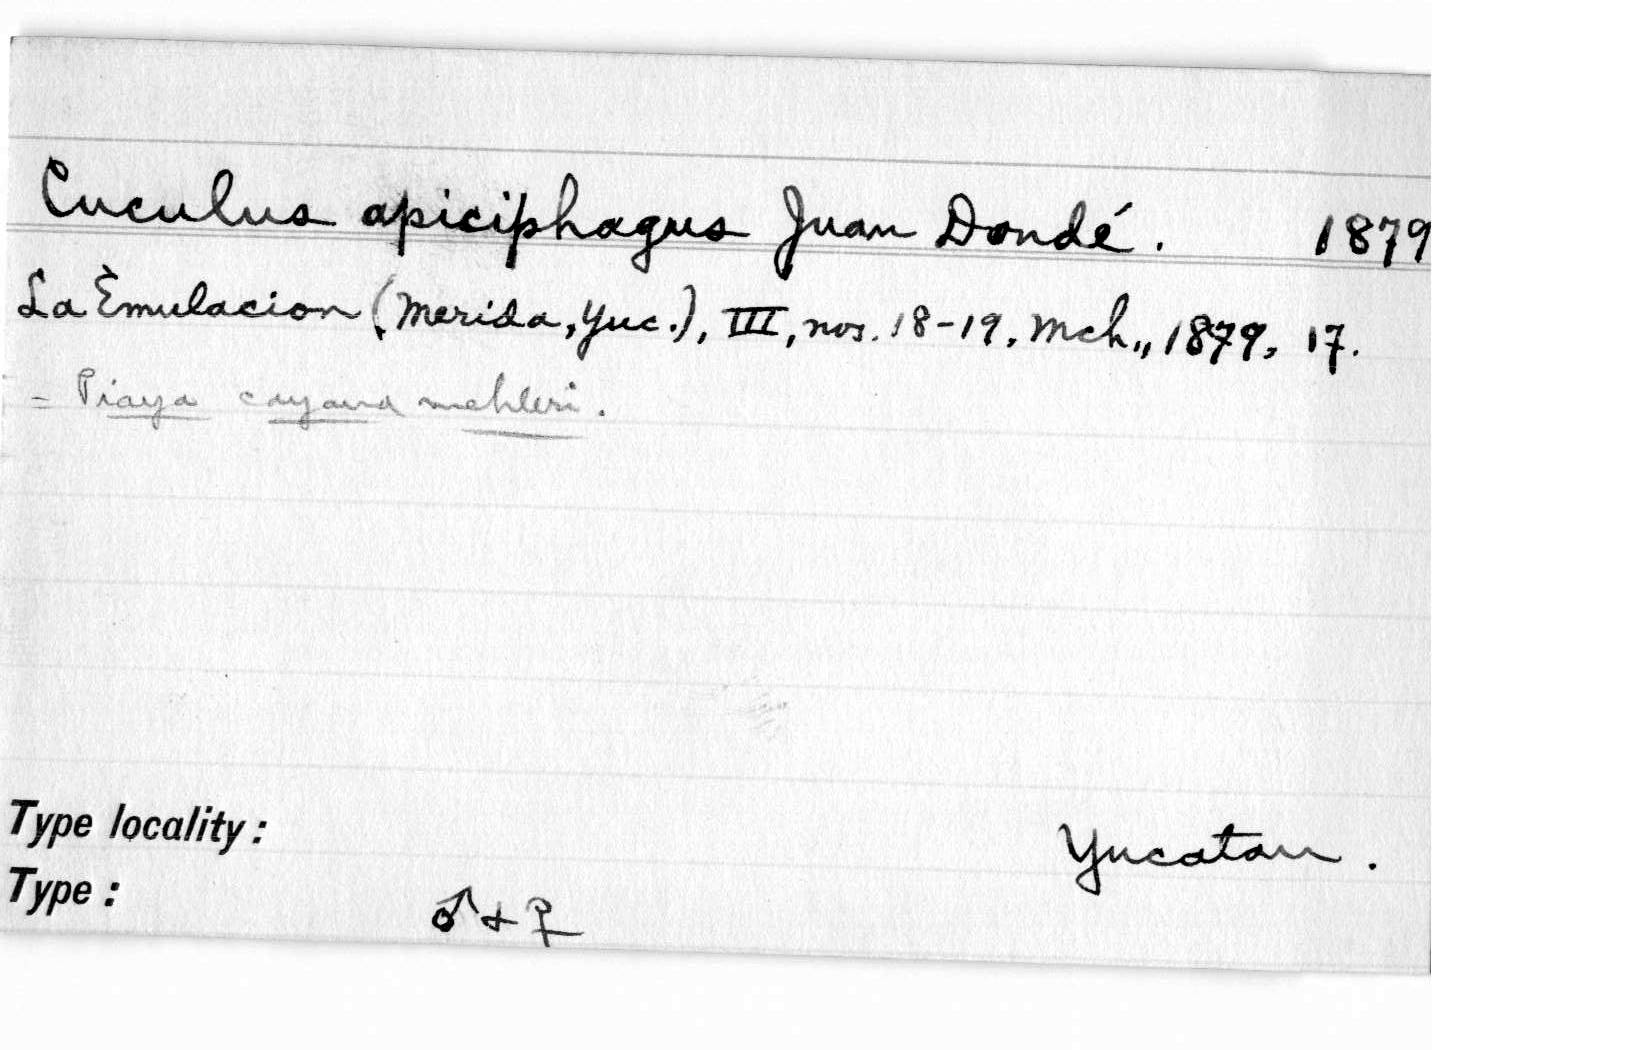 Cuculus apiciphagus Juan Dondé. 1879
La Èmulacion (Merida, Yuc.), III, nos. 18-19, Mch., 1879, 17.
= Piaya cayana mehleri.
Type locality: Yucatan.
Type: ♂ & ♀